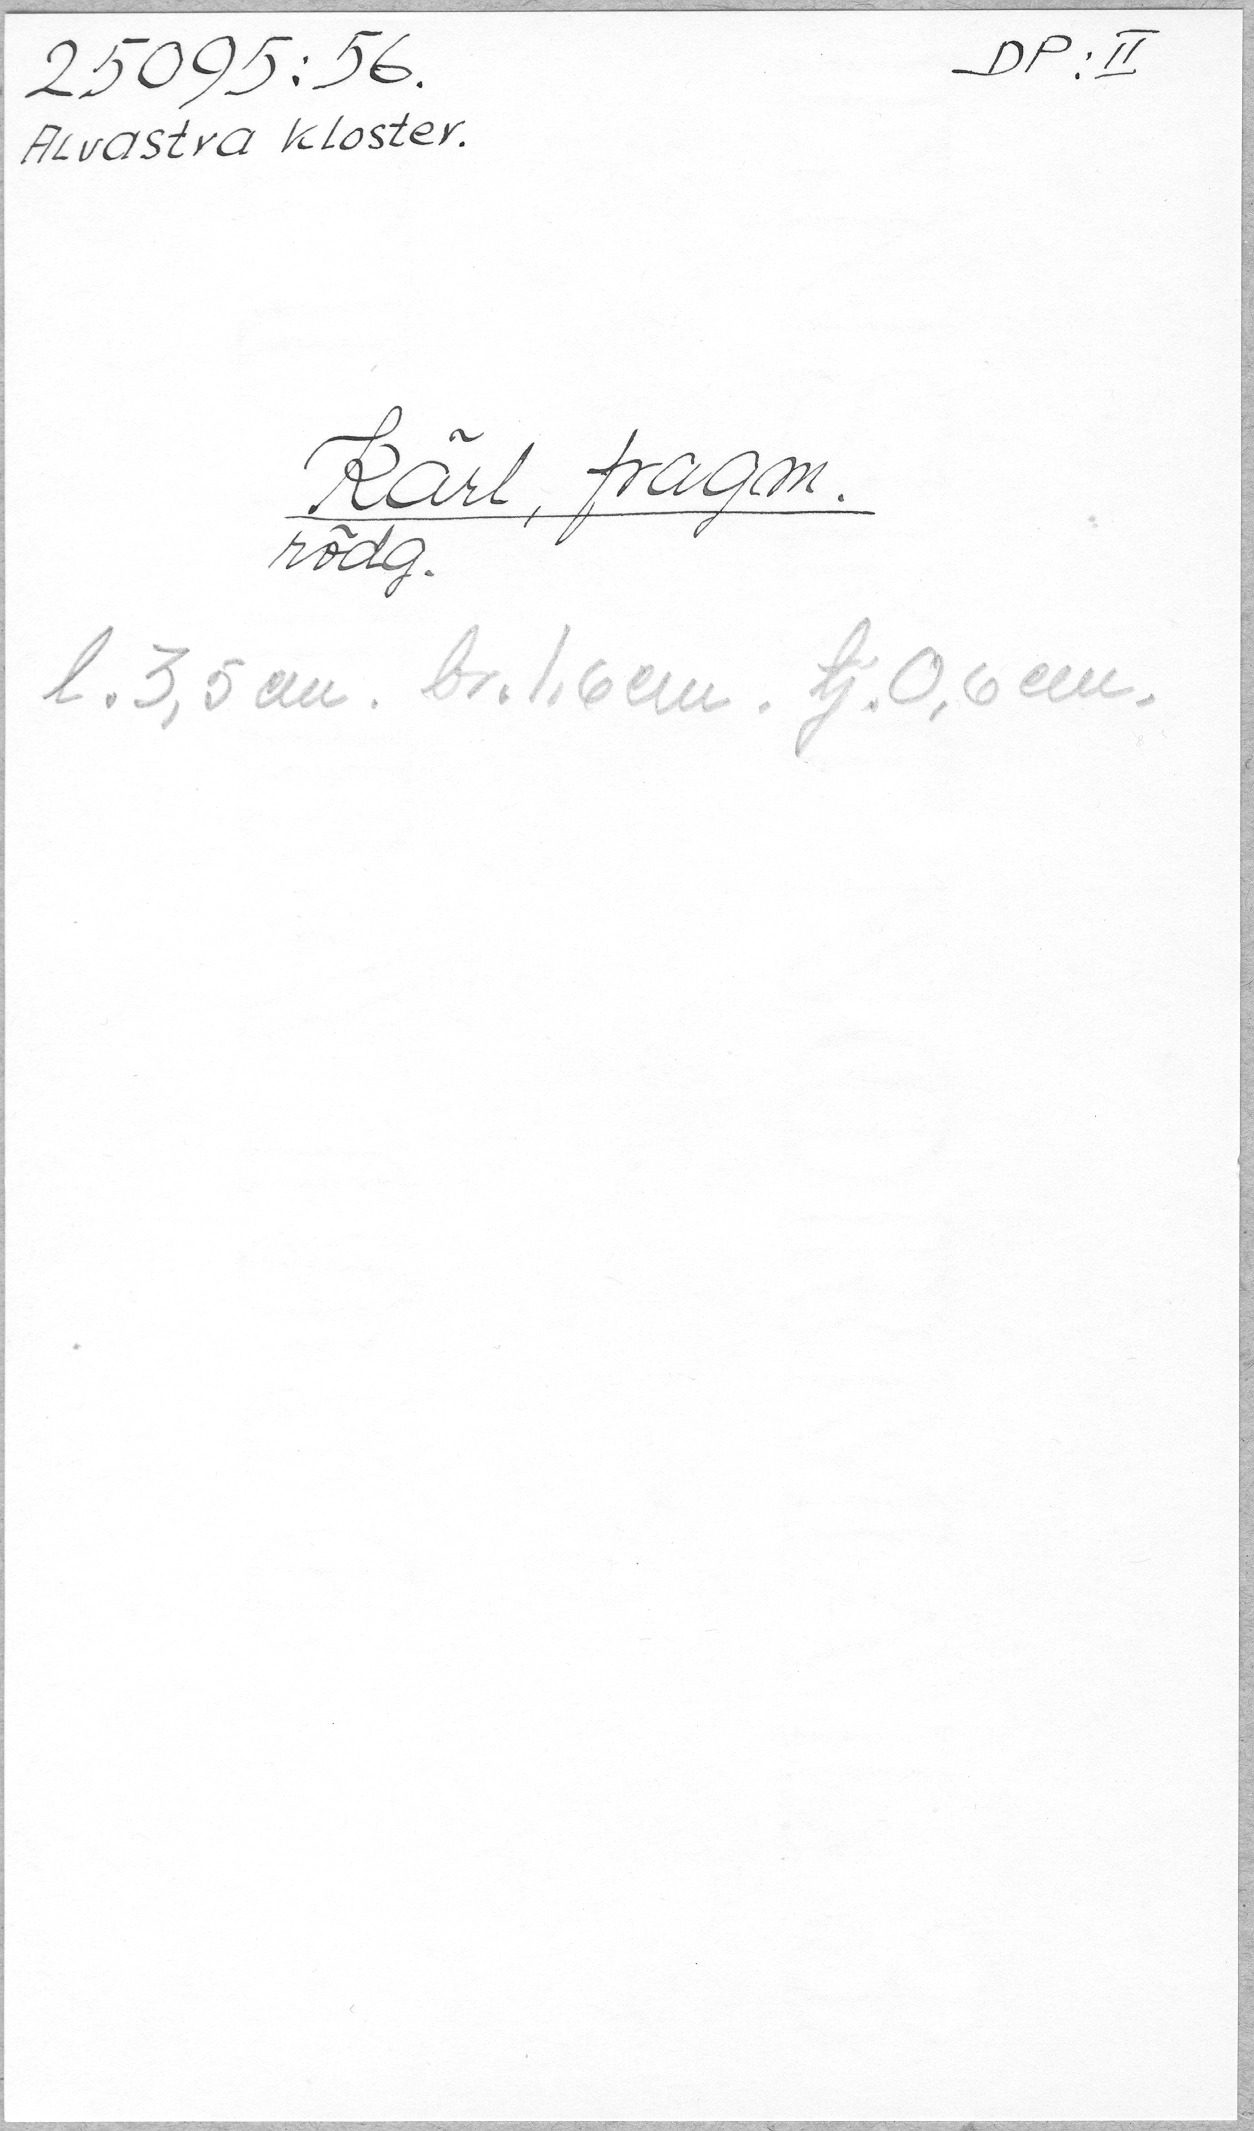 25095:56.
DP:II
Alvastra kloster.
Kärl, fragm.
rödg.
l. 3,5 cm. br. 1,6 cm. tj. 0,6 cm.